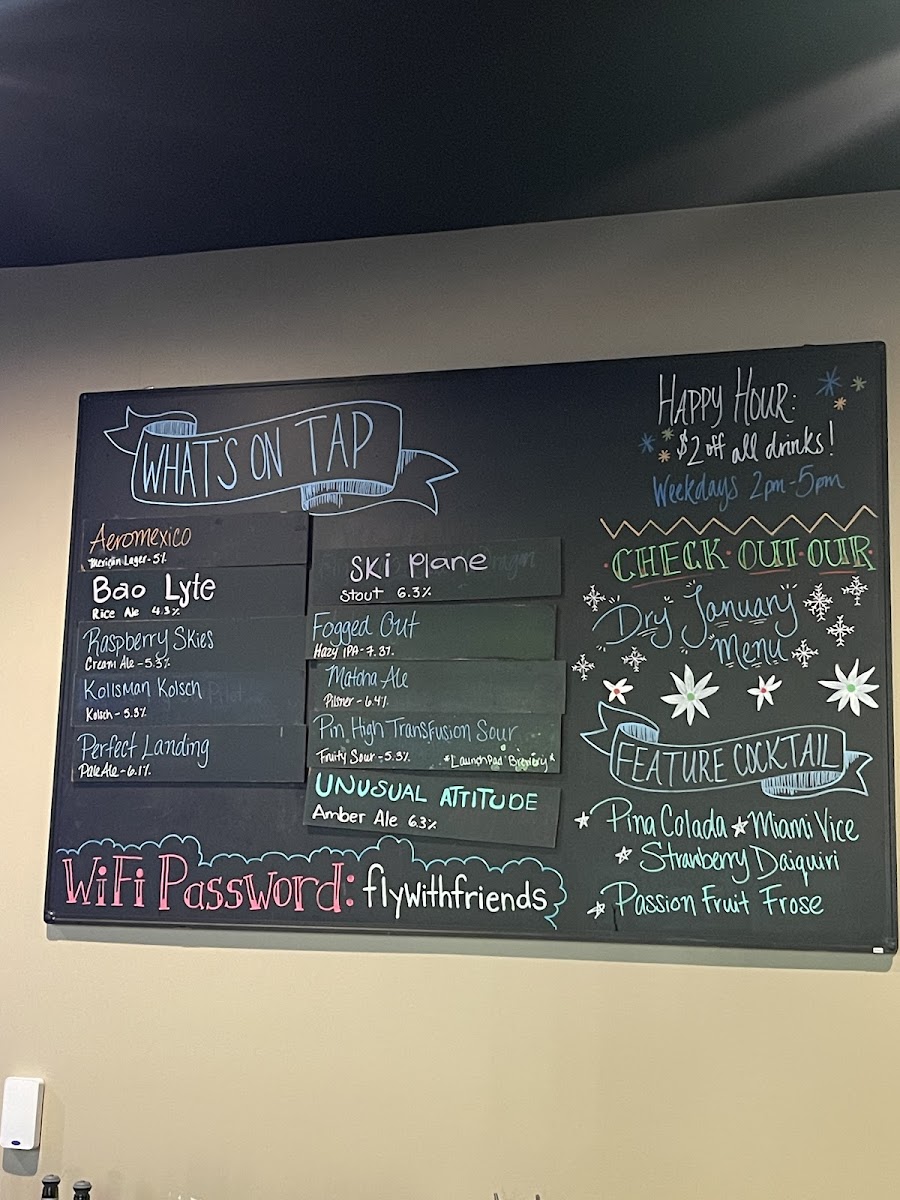 WHAT'S ON TAP
Aeromexico
Mexican Lager - 5%
Bao Lyte
Rice Ale 4.3%
Raspberry Skies
Cream Ale - 5.3%
Kollsman Kolsch
Kolsch - 5.3%
Perfect Landing
Pale Ale - 6.1%
Ski Plane
Stout 6.3%
Fogged Out
Hazy IPA - 7.3%
Matoha Ale
Pilsner - 6.4%
Pin High Transfusion Sour
Fruity Sour - 5.3% *Launch Pad Brewery*
UNUSUAL ATTITUDE
Amber Ale 6.3%
WiFi Password: flywithfriends
HAPPY HOUR:
$2 off all drinks!
Weekdays 2pm - 5pm
CHECK OUT OUR
Dry January
Menu
FEATURE COCKTAIL
Pina Colada Miami Vice
Stranberry Daiquiri
Passion Fruit Frose